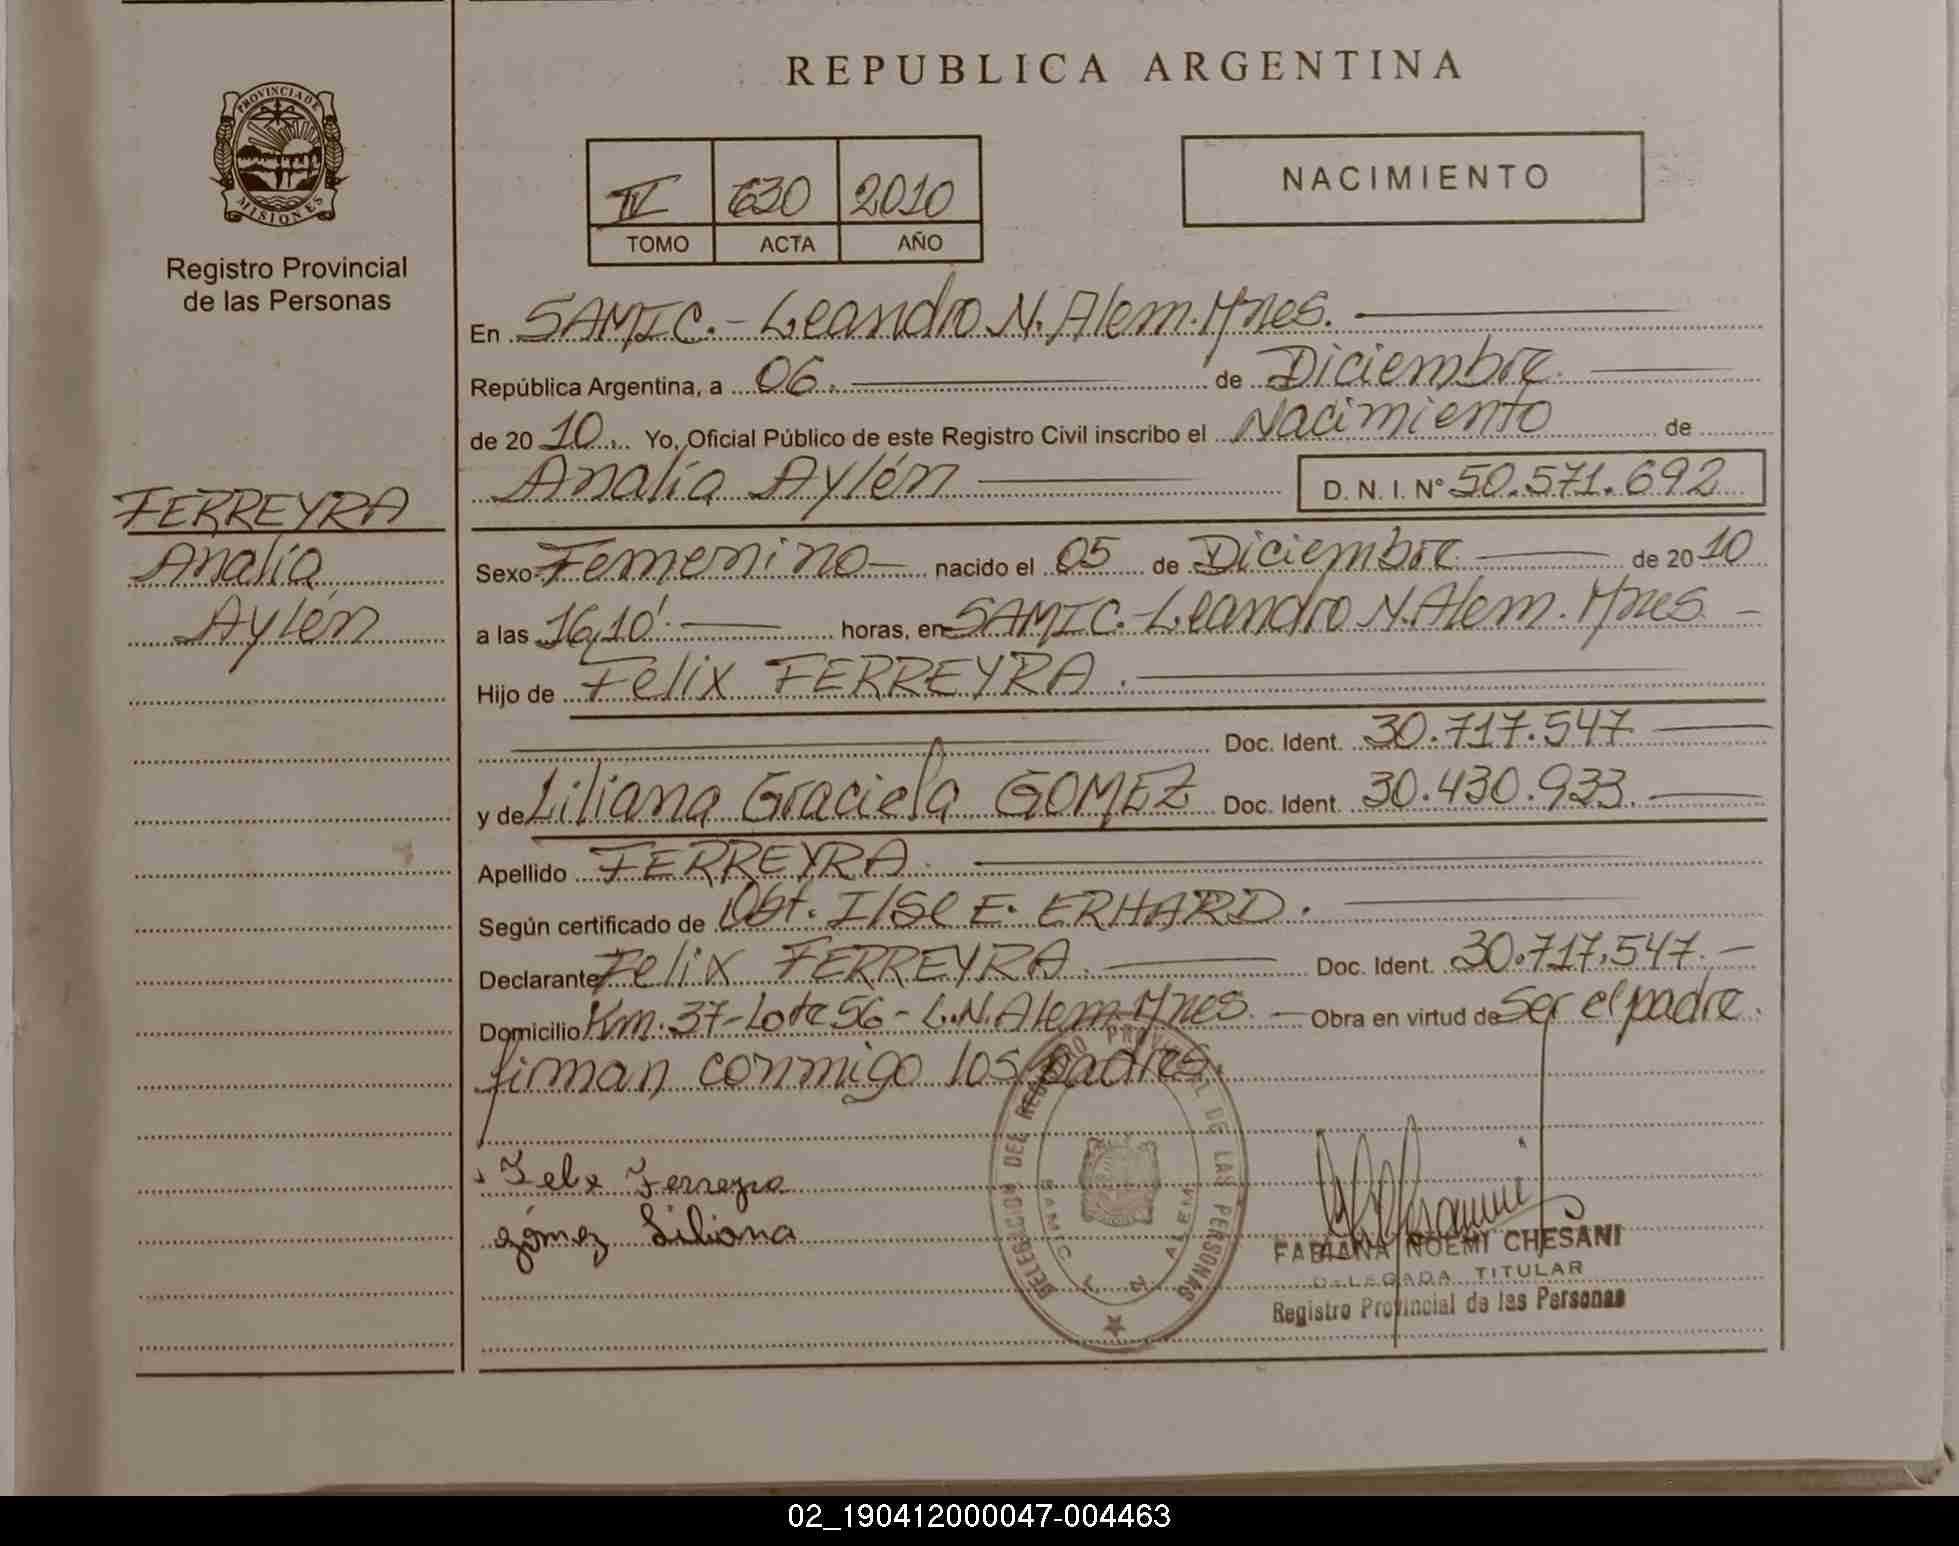 REPUBLICA ARGENTINA
PROVINCIA DE
MISIONES
Registro Provincial
de las Personas
IV 630 2010
TOMO ACTA AÑO
NACIMIENTO
En SAMIC.- Leandro N. Alem. Mnes.
República Argentina, a 06. de Diciembre.
de 20 10. Yo, Oficial Público de este Registro Civil inscribo el Nacimiento de
Analía Aylén D. N. I. Nº 50.571.692
FERREYRA
Analía
Aylén
Sexo Femenino nacido el 05 de Diciembre de 20 10
a las 16,10' horas, en SAMIC.- Leandro N. Alem. Mnes
Hijo de Felix FERREYRA.
Doc. Ident. 30.717.547
y de Liliana Graciela GOMEZ Doc. Ident. 30.430.933.
Apellido FERREYRA.
Según certificado de Obst. Ilse E. ERHARD.
Declarante Felix FERREYRA. Doc. Ident. 30.717.547.
Domicilio Km. 37-Lote 56- L.N. Alem-Mnes. Obra en virtud de Ser el padre.
firman conmigo los padres.
Felix Ferreyra
gómez Liliana
DELEGACION DEL REGISTRO PROVINCIAL DE LAS PERSONAS
SAMIC L N ALEM
FABIANA NOEMI CHESANI
DELEGADA TITULAR
Registro Provincial de las Personas
02_190412000047-004463